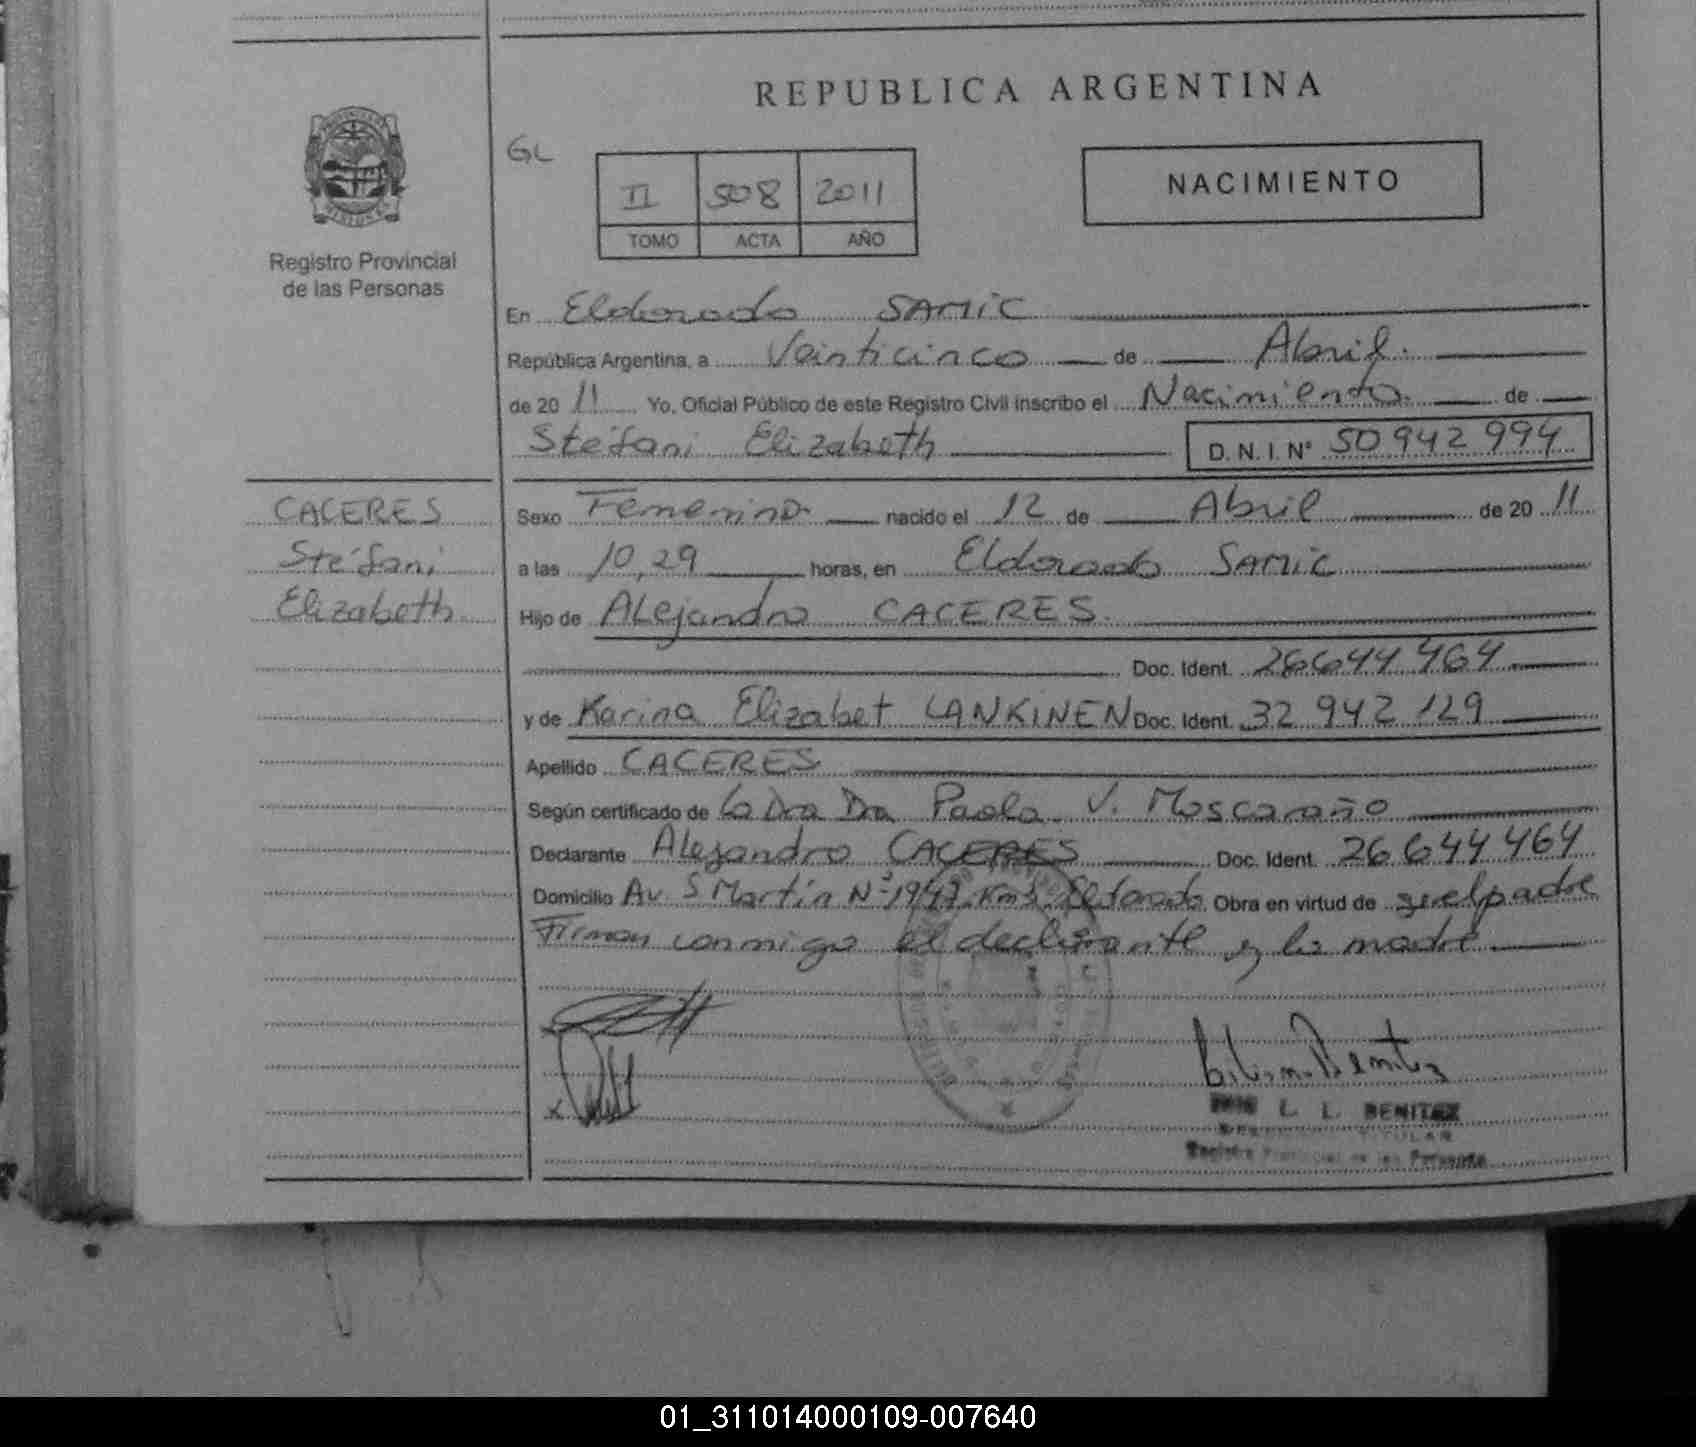 REPUBLICA ARGENTINA
GL
II 508 2011
TOMO ACTA AÑO
NACIMIENTO
Registro Provincial
de las Personas
En Eldorado SAMIC
República Argentina, a Veinticinco de Abril.
de 2011 Yo, Oficial Público de este Registro Civil inscribo el Nacimiento de
Stéfani Elizabeth D.N.I. N° 50 942 994
CACERES
Stéfani
Elizabeth
Sexo Femenino nacido el 12 de Abril de 2011
a las 10,29 horas, en Eldorado SAMIC
Hijo de Alejandro CACERES.
Doc. Ident. 26644464
y de Karina Elizabet LANKINEN Doc. Ident. 32 942 129
Apellido CACERES
Según certificado de la Dra Dra Paola V.
Declarante Alejandro CACERES Doc. Ident. 26 644 464
Domicilio Av. S Martín N° 1947 Km3 Eldorado Obra en virtud de ser el padre
Firman conmigo el declarante y la madre
L. L. BENITEZ
TITULAR
Registro Provincial de las Personas
01_311014000109-007640